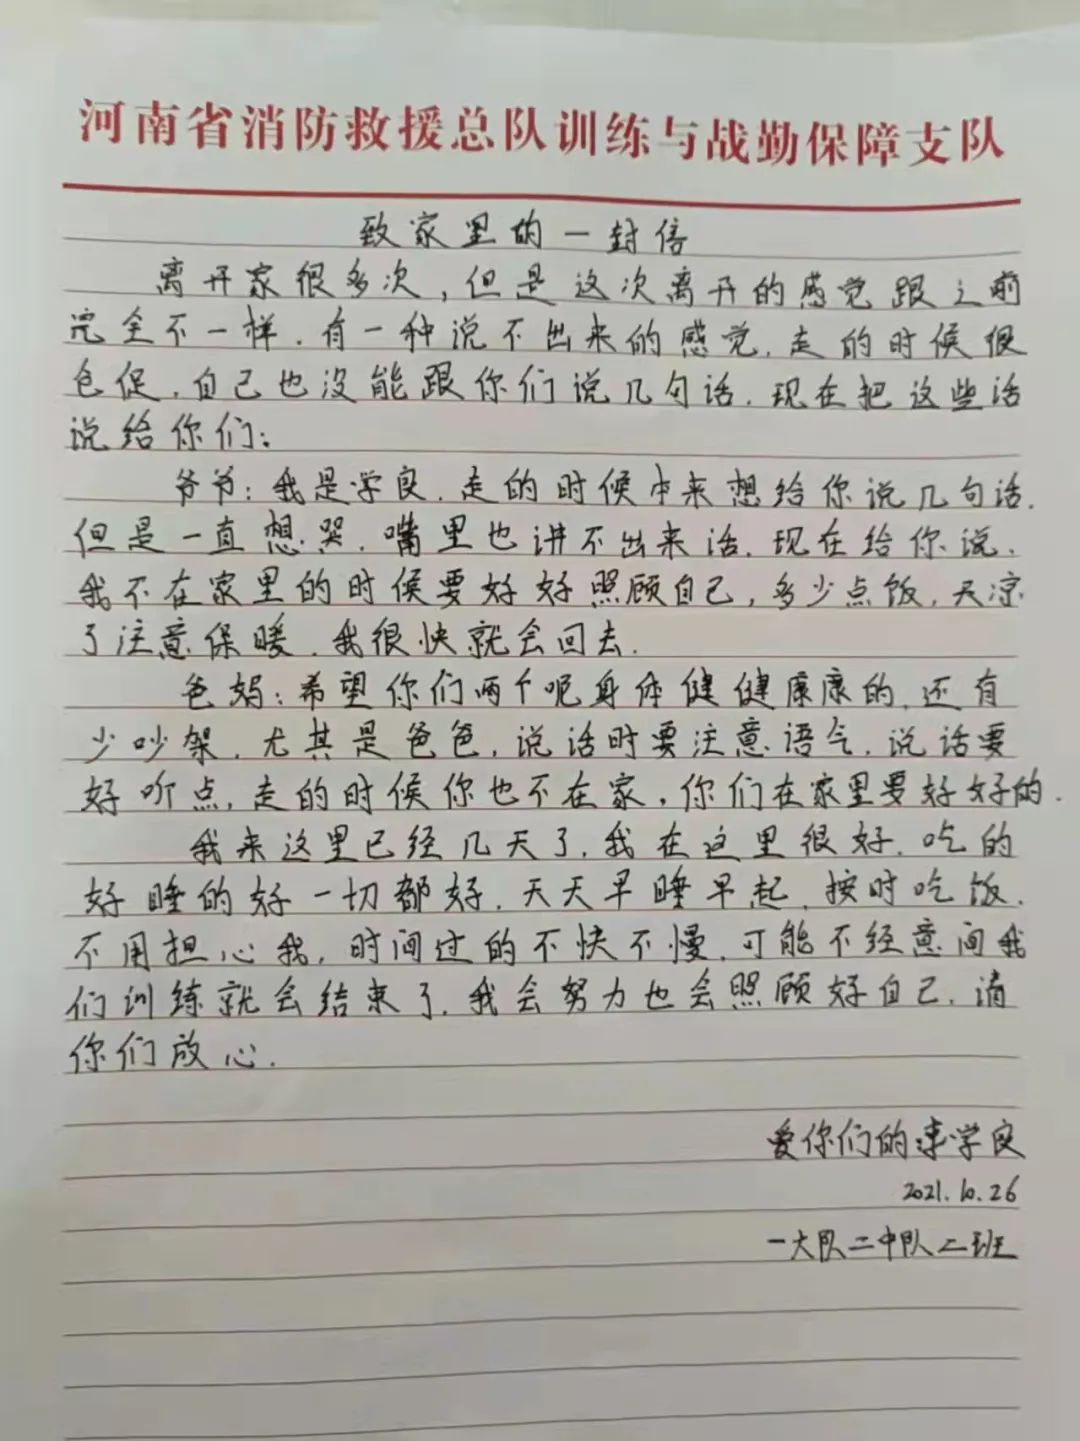 河南省消防救援总队训练与战勤保障支队
致家里的一封信
离开家很多次，但是这次离开的感觉跟之前
完全不一样.有一种说不出来的感觉.走的时候很
仓促.自己也没能跟你们说几句话.现在把这些话
说给你们：
爷爷：我是学良.走的时候本来想给你说几句话.
但是一直想哭.嘴里也讲不出来话.现在给你说.
我不在家里的时候要好好照顾自己，多少点饭.天凉
了注意保暖.我很快就会回去.
爸妈：希望你们两个呢身体健健康康的.还有
少吵架.尤其是爸爸，说话时要注意语气.说话要
好听点，走的时候你也不在家，你们在家里要好好的.
我来这里已经几天了.我在这里很好.吃的
好睡的好一切都好.天天早睡早起.按时吃饭.
不用担心我，时间过的不快不慢.可能不经意间我
们训练就会结束了.我会努力也会照顾好自己.请
你们放心.
爱你们的学良
2021.10.26
一大队二中队二班